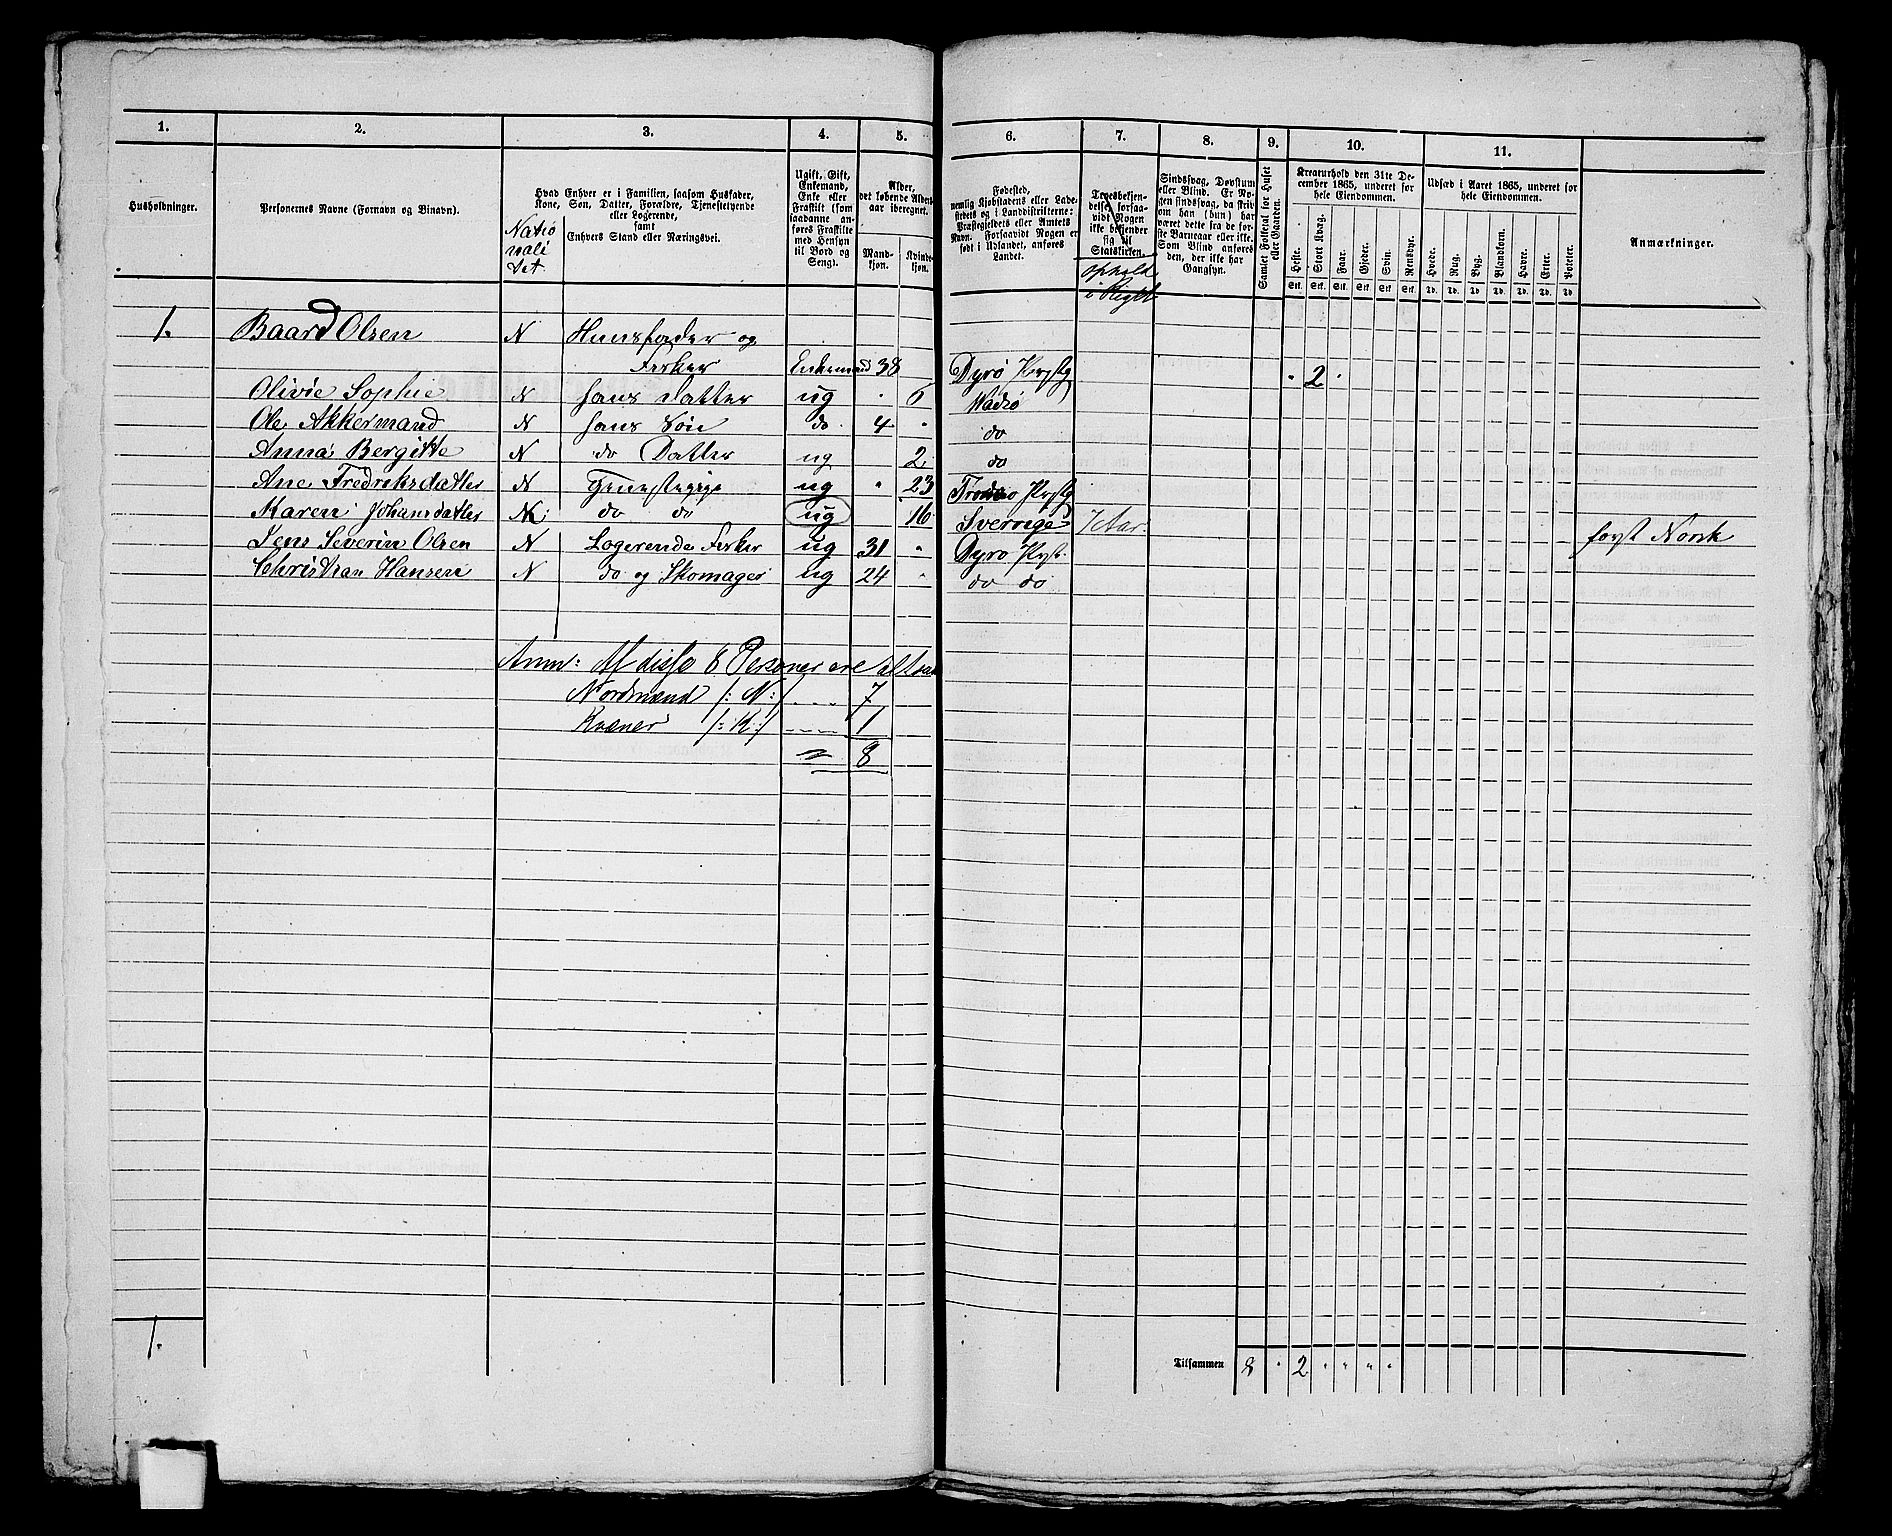 1. 2. 3. 4. 5. 6. 7. 8. 9. 10. 11.
Husholdninger.
Personernes Navne (Fornavn og Binavn).
Hvad Enhver er i Familien, saasom Husfader,
Kone, Søn, Datter, Forældre, Tjenestetyende
eller Logerende,
samt
Enhvers Stand eller Næringsvei.
Natio
nali
tet.
Ugift, Gift,
Enkemand,
Enke eller
Fraskilt (som
saadanne an-
føres Fraskilte
med Hensyn
til Bord og
Seng).
Alder,
det løbende Alders-
aar iberegnet.
Mand-
kjøn.
Kvinde-
kjøn.
Fødested,
nemlig Kjøbstadens eller Lade-
stedets og i Landdistrikterne:
Præstegjeldets eller Amtets
Navn. Forsaavidt Nogen er
født i Udlandet, anføres
Landet.
Troesbekjen-
delse, forsaa-
vidt Nogen
ikke bekjender
sig til
Statskirken.
ophold
i Riget
Sindssvag, Døvstum
eller Blind. Er No-
gen sindssvag, da skriv
om han (hun) har
været dette fra de før-
ste Barneaar eller ikke.
Som Blind anføres
den, der ikke har
Gangsyn.
Samlet Folketal for Huset
eller Gaarden.
Kreaturhold den 31te De-
cember 1865, underet for
hele Eiendommen.
Heste. Stort Kvæg. Faar. Gjeder. Svin. Rensdyr.
Stk. Stk. Stk. Stk. Stk. Stk.
Udsæd i Aaret 1865, underet for
hele Eiendommen.
Hvede. Rug. Byg. Blandkorn. Havre. Erter. Poteter.
Td. Td. Td. Td. Td. Td. Td.
Anmærkninger.
1. Baard Olsen N Huusfader og
Fisker Enkemand 38 Dyrø Prstg " 2 "
Olivie Sophie N hans Datter ug " 6 Wadsø
Ole Akkermand N hans Søn do 4 " do
Anna Bergitte N do Datter ug 2 do
Ane Fredriksdatter N Tjenestepige ug " 23 Tromsø Prstg
Maren Johansdatter NK: do do ug 16 Sverrige 7 Aar. først Norsk
Jens Severin Olsen N Logerende Fisker ug 31 " Dyrø Prst.
Christian Hansen N do og Skomager ug 24 " do do
Anm: Af disse 8 Personer ere altsaa
Nordmænd /: N :/ .... 7
Kvæner /: K :/ .... 1
8
1.
Tilsammen 8 " 2 " " " "